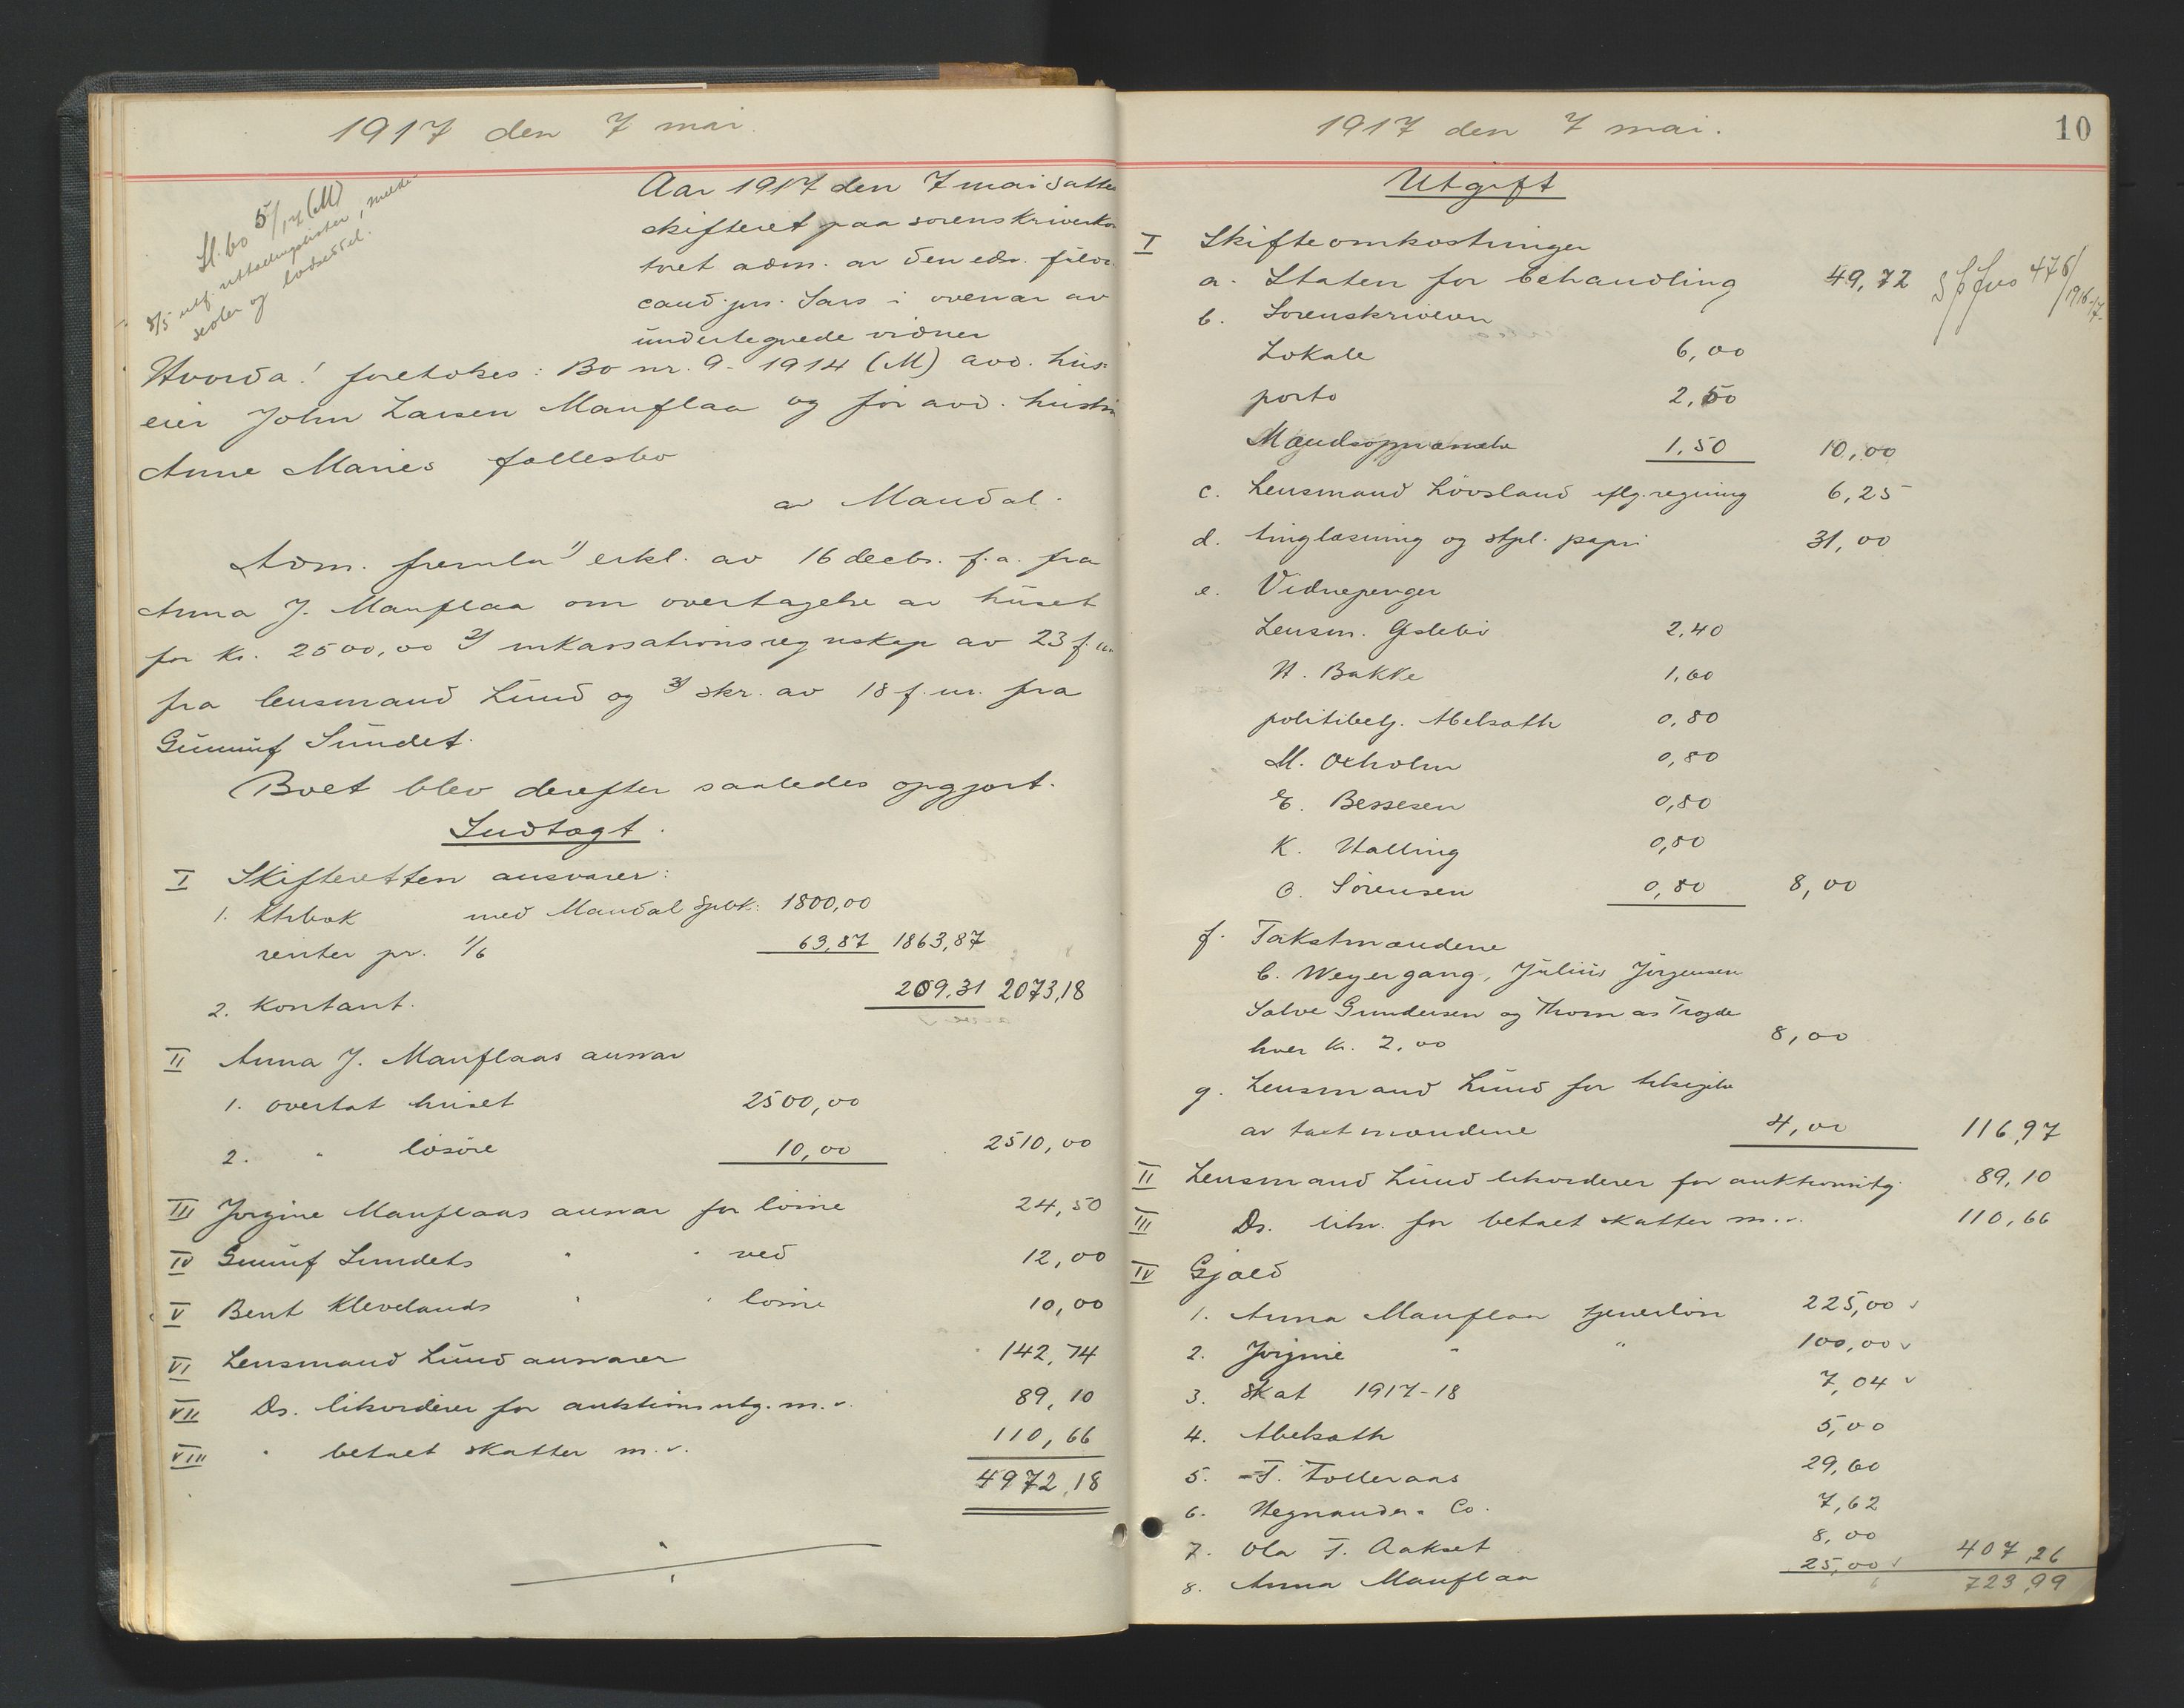 1917 den 7 mai.
Sl. bo 5/17 (M)
8/5 utf. utlodningslister, medde-
sedler og lodseddel.
Aar 1917 den 7 mai sattes
skifteret paa sorenskriverkon
toret adm. av den edsv. fuldm.
cand. jur. Sars i overvær av
undertegnede vidner
Hvorda! foretokes: Bo nr. 9 - 1914 (M) avd. hus-
eier John Larsen Manflaa og før avd. hustru
Anne Maries fællesbo
av Mandal.
Adm. fremla 1) erkl. av 16 decbr. f.a. fra
Anna J. Manflaa om overtagelse av huset
for kr. 2500,00 2) inkassationsregnskap av 23 f.m.
fra lensmand Lund og 3) skr. av 18 f.m. fra
Gunuf Sundet.
Boet blev derefter saaledes opgjort.
Indtægt.
I Skifteretten ansvarer:
1. Ktrbok med Mandal Spbk: 1800,00
renter pr. 1/6 63,87 1863,87
2. kontant. 209,31 2073,18
II Anna J. Manflaas ansvar
1. overtat huset 2500,00
2. " løsøre 10,00 2510,00
III Jørgine Manflaas ansvar for løsøre 24,50
IV Gunuf Sundets " " ved 12,00
V Bent Klevelands " " løsøre 10,00
VI Lensmand Lund ansvarer 142,74
VII Ds. likviderer for auktionsutg. m.v. 89,10
VIII " betalt skatter m.v. 110,66
4972,18
1917 den 7 mai.
10
Utgift
I Skifteomkostninger
a. Staten for behandling 49,72 476/1916-17
b. Sorenskriveren
Lokale 6,00
porto 2,50
Mændsopnævnelse 1,50 10,00
c. Lensmand Løvsland iflg. regning 6,25
d. tinglæsning og stpl. papir 31,00
e. Vidnepenger
Lensm. Gslebø 2,40
N. Bakke 1,60
politibetj. Abelsæth 0,80
M. Oxholm 0,80
E. Bessesen 0,80
K. Halling 0,80
O. Sørensen 0,80 8,00
f. Takstmændene
C. Weyergang, Julius Jørgensen
Salve Gundersen og Thomas Trogde
hver kr. 2,00 8,00
g. Lensmand Lund for tilsigelse
av takstmændene 4,00 116,97
II Lensmand Lund likviderer for auktionsutg. 89,10
III Ds. likv. for betalt skatter m.v. 110,66
IV Gjæld
1. Anna Manflaa tjenerløn 225,00
2. Jørgine " " 100,00
3. Skat 1917-18 7,04
4. Abelsæth 5,00
5. T. Tolleraas 29,60
6. Hegnander & Co. 7,62
7. Ola T. Aakset 8,00
8. Anna Manflaa 25,00 407,26
723,99